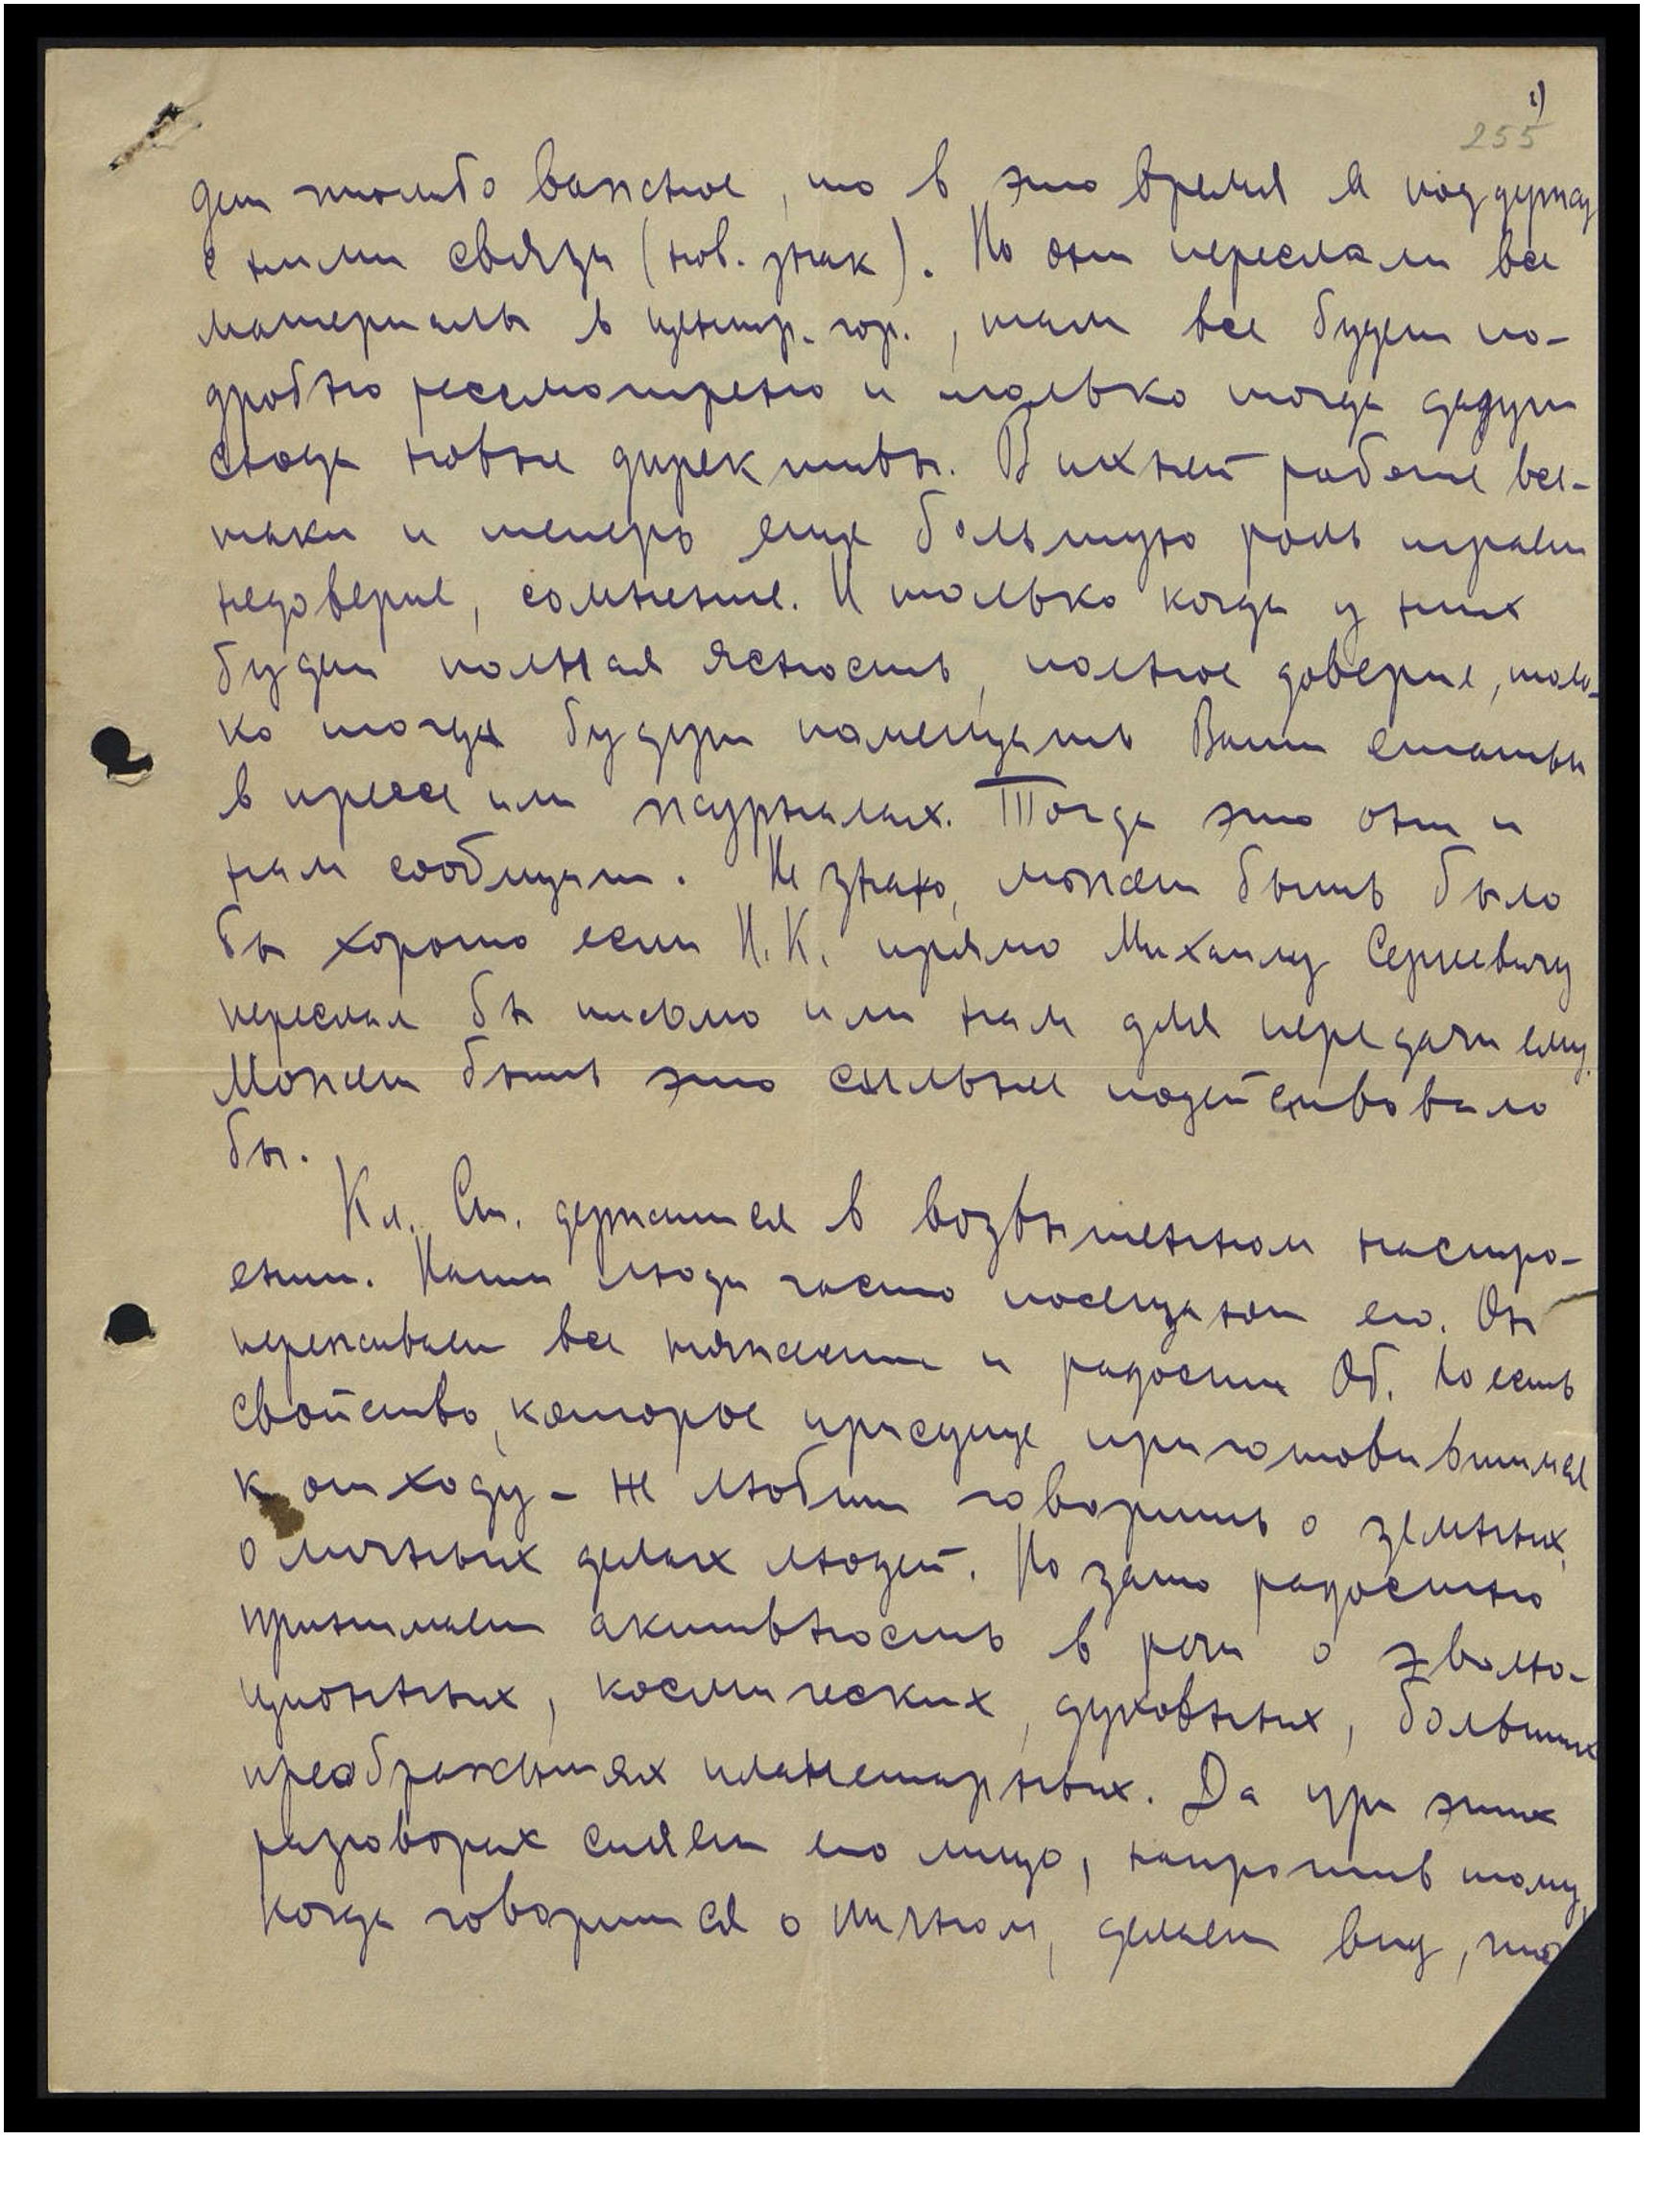 2)
255
дет что либо важное, то в это время я поддержу
с ними связи (нов. знак). Но они переслали все
материалы в центр. гор., там все будет по-
дробно рассмотрено и только тогда дадут
сюда новые директивы. В ихней работе все-
таки и теперь еще большую роль играет
недоверие, сомнение. И только когда у них
будет полная ясность, полное доверие, толь-
ко тогда будут помещать Ваши статьи
в прессе или журналах. Тогда это они и
нам сообщат. Не знаю, может быть было
бы хорошо если Н.К. прямо Михаилу Сергеевичу
переслал бы письмо или нам для передачи ему.
Может быть это сильнее подействовало
бы.
Кл. Ст. держится в возвышенном настро-
ении. Наши люди часто посещают его. Он
переживает все тяжести и радости Об. Но есть
свойство, которое присуще приготовившимся
к отходу – не любит говорить о земных,
о личных делах людей. Но зато радостно
принимает активность в речи о эволю-
ционных, космических, духовных, больших
преображениях планетарных. Да при этих
разговорах сияет его лицо, напротив тому,
когда говорится о личном, делает вид, что